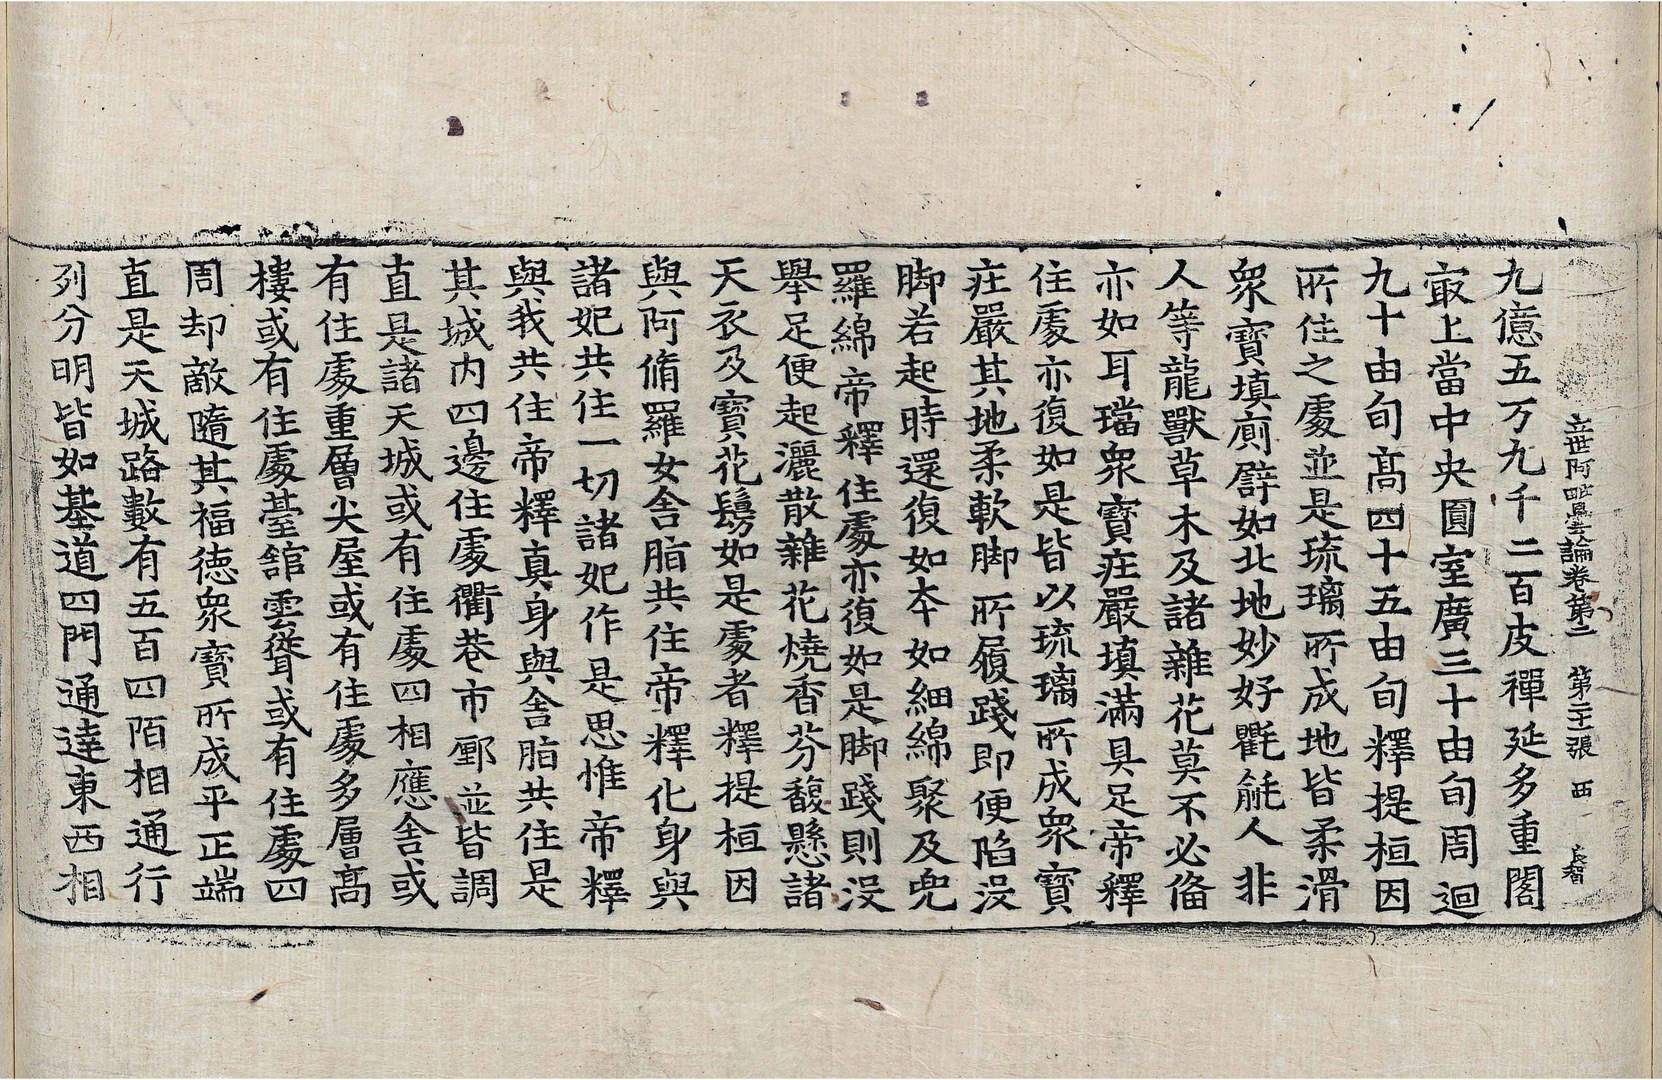 立世阿毗曇論卷第二　第二十一張　西
九億五万九千二百皮禪延多重閣
㝡上當中央圓室廣三十由旬周迴
九十由旬髙四十五由旬釋提桓因
所住之處並是琉璃所成地皆柔滑
衆寶填廁譬如北地妙好氍毹人非
人等龍獸草木及諸雜花莫不必俻
亦如耳璫衆寶庄嚴填滿具足帝釋
住處亦復如是皆以琉璃所成衆寶
庄嚴其地柔軟脚所履踐即便陷没
脚若起時還復如夲如細綿聚及兜
羅綿帝釋住處亦復如是脚踐則没
舉足便起灑散雜花燒香芬馥懸諸
天衣及寶花鬘如是處者釋提桓因
與阿脩羅女舍脂共住帝釋化身與
諸妃共住一切諸妃作是思惟帝釋
與我共住帝釋真身與舍脂共住是
其城内四邊住處衢巷市鄽並皆調
直是諸天城或有住處四相應舍或
有住處重層尖屋或有住處多層髙
樓或有住處臺舘雲聳或有住處四
周却敵隨其福德衆寶所成平正端
直是天城路數有五百四陌相通行
列分明皆如基道四門通達東西相